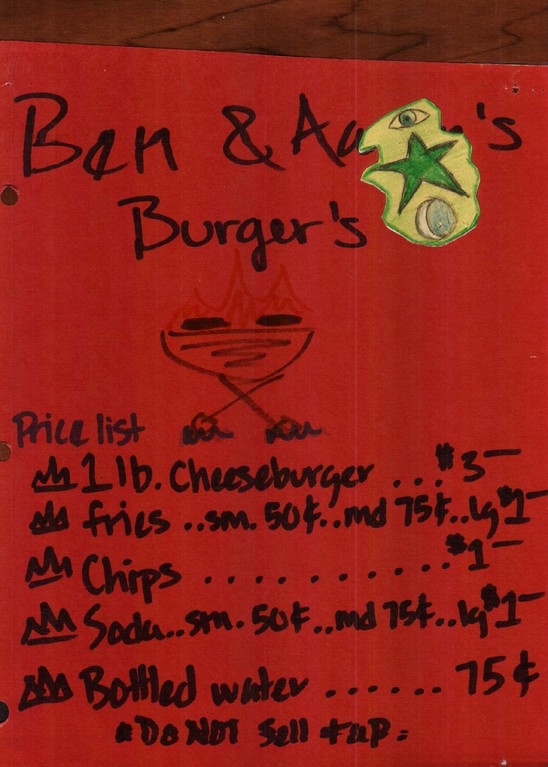 Ben & 's
Burger's
Price list
1 lb. Cheeseburger ... $3-
fries ..sm. 50¢..md 75¢..lg $1-
Chips ........... $1-
Soda..sm. 50¢..md 75¢..lg $1-
Bottled water ...... 75¢
"Do NOT Sell tap=